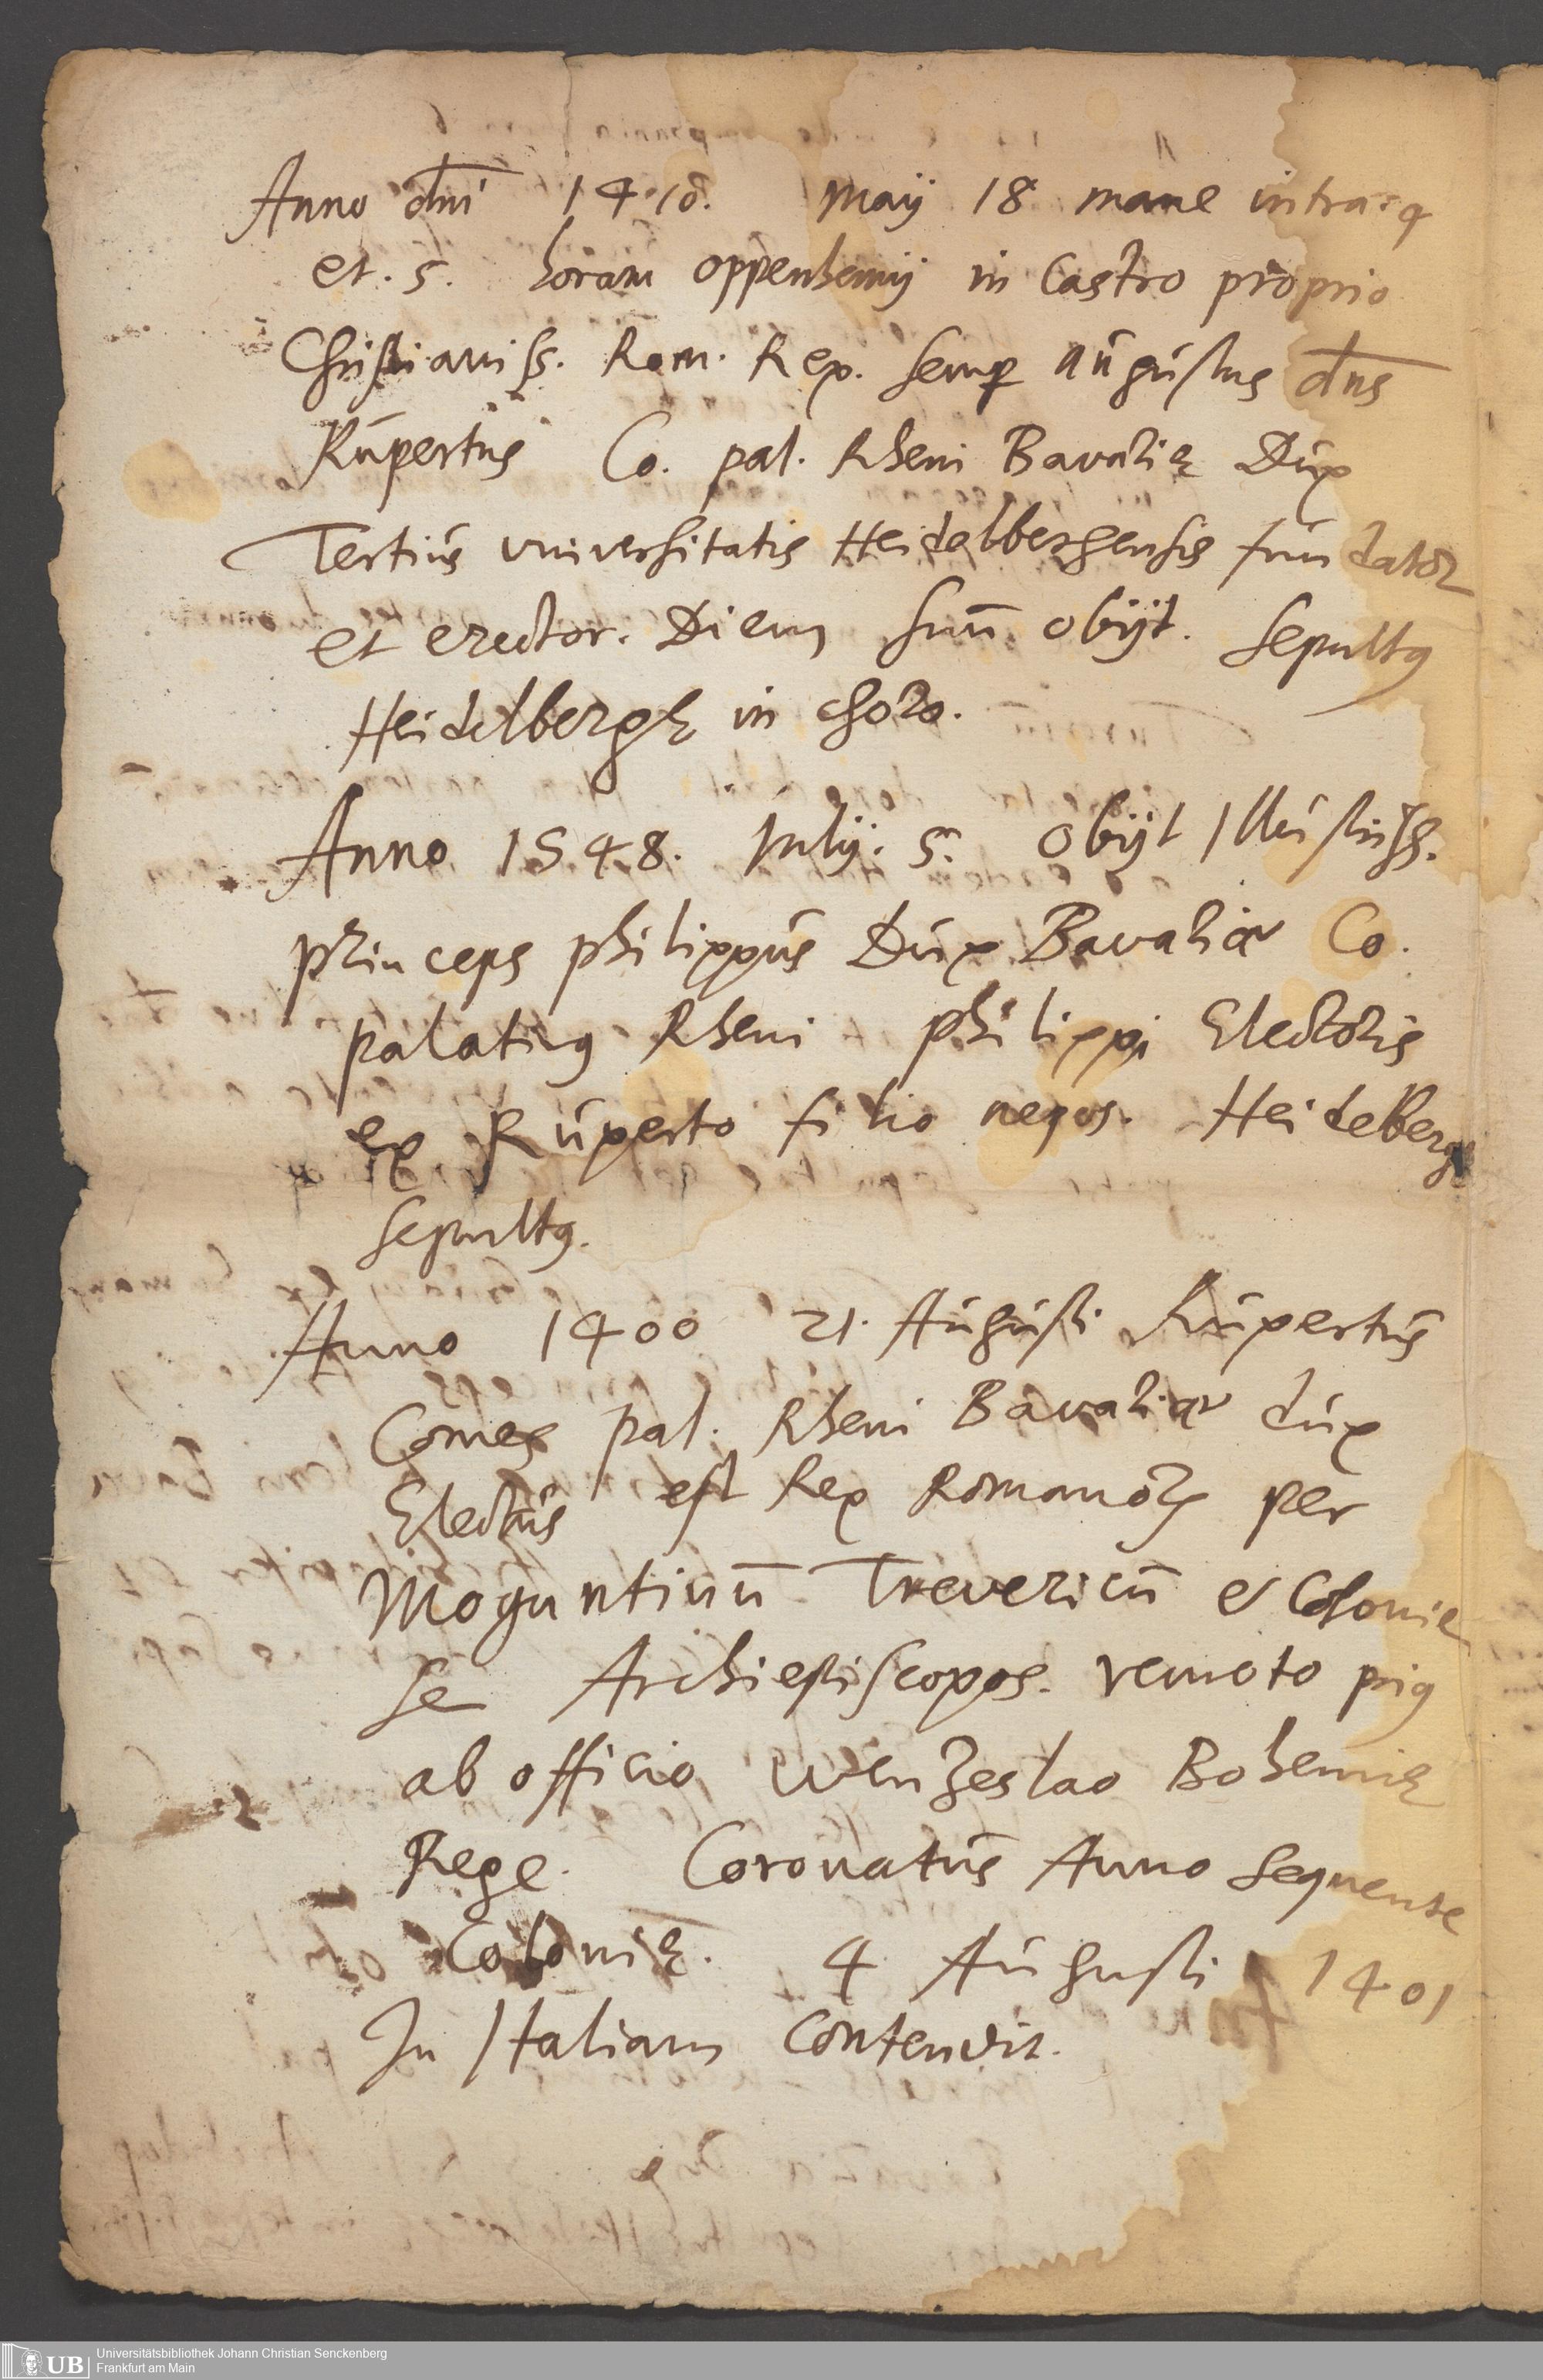 Anno dni 1410. Maÿ 18 mane intra. 4
et. 5. horam oppenhemÿ in Castro proprio
Christianiss. Rom. Rex. semp augustus dns
Rupertus Co. pal. Rheni Bavarię Dux
Tertius universitatis Heidelbergensis fundator
et erector. Diem suū obÿt. Sepultꝰ
Heidelbergę in choro.
Anno 1548. Julÿ. 5. obÿt Illustriss.
princeps philippus Dux Bavariæ Co.
palatinꝰ Rheni philippi Electoris
ex Ruperto filio nepos. Heidelberge
sepultꝰ.
Anno 1400 21. Augusti Rupertus
Comes pal. Rheni Bavariæ dux
Electus est Rex Romanoꝝ per
Moguntinū Trevericū et Colonien
se Archiepiscopos. remoto priꝰ
ab officio Wenzeslao Bohemię
Rege. Coronatus Anno sequente
Colonię. 4 Augusti 1401
In Italiam contendit.
UB Universitätsbibliothek Johann Christian Senckenberg
Frankfurt am Main